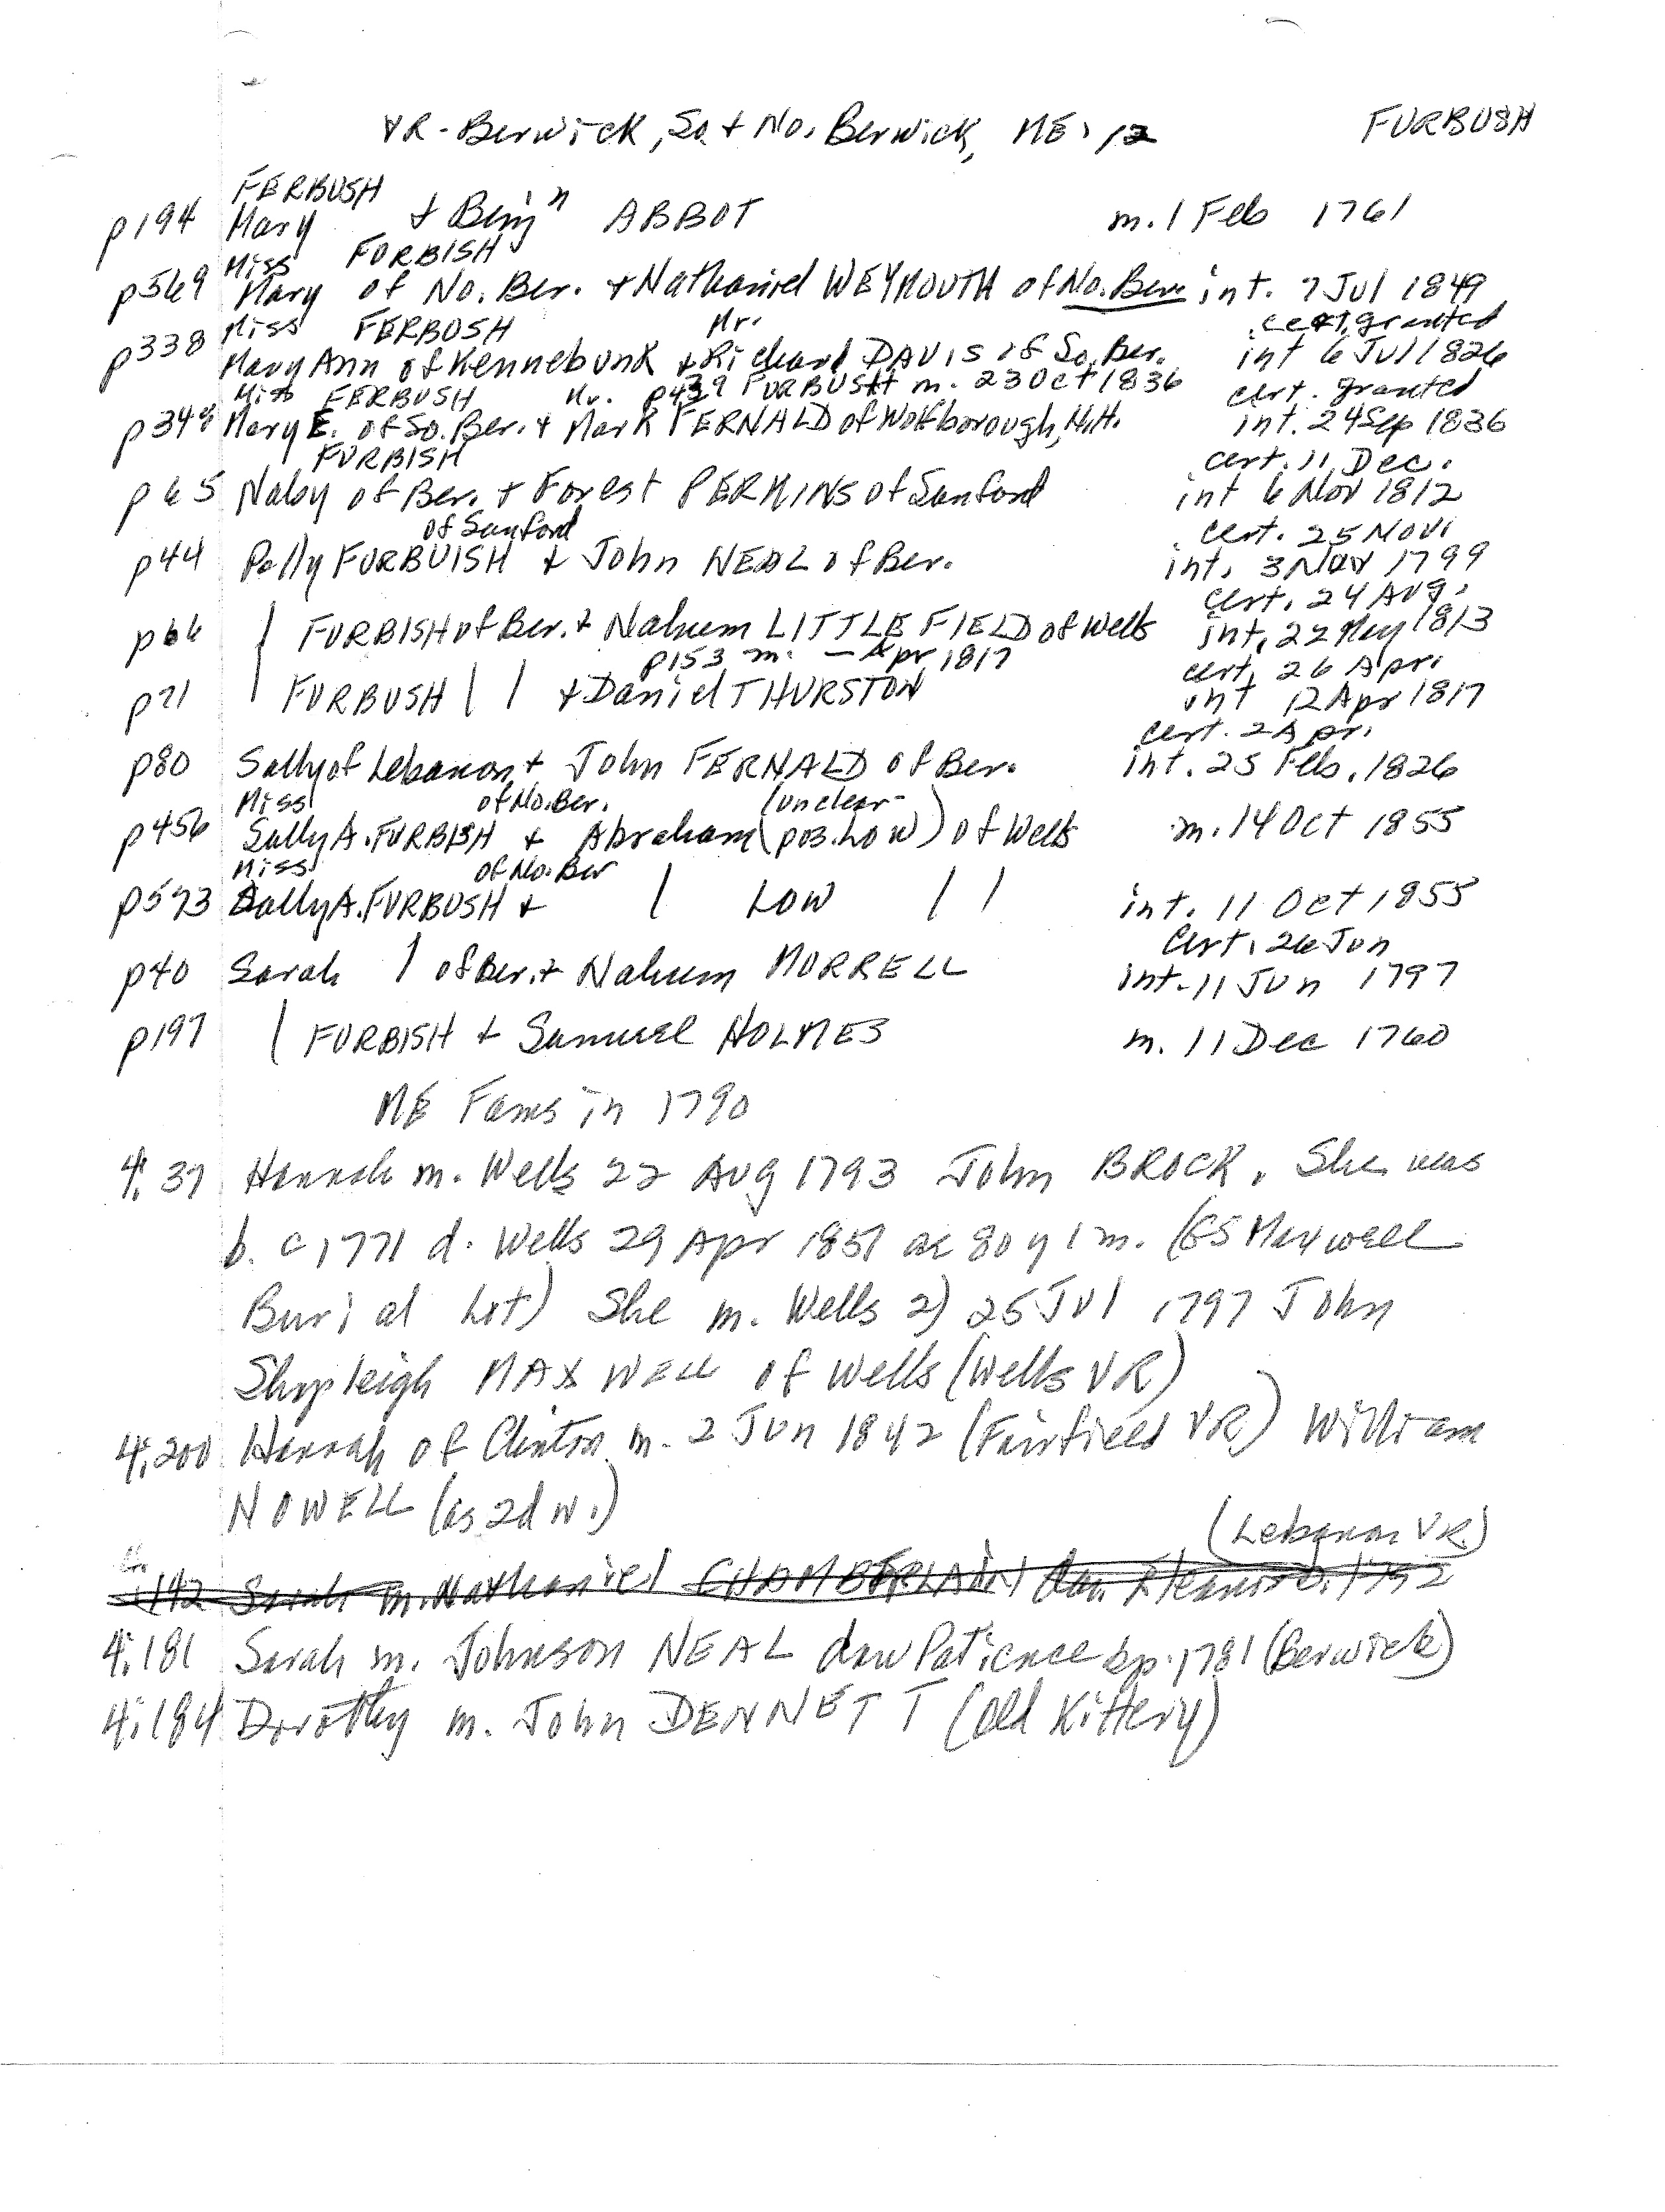 VR - Berwick, So. + No. Berwick, ME. 12 FURBUSH
FERBUSH
p194 Mary + Benjn ABBOT m. 1 Feb 1761
Miss FURBISH
p569 Mary of No. Ber. + Nathaniel WEYMOUTH of No. Ber. int. 7 Jul 1849
Miss FERBUSH Mr. cert. granted
p338 Mary Ann of Kennebunk + Richard DAVIS of So. Ber. int 6 Jul 1826
Miss FERBUSH Mr. p439 FURBUSH m. 23 Oct 1836 cert. granted
p348 Mary E. of So. Ber. + Mark FERNALD of Wolfborough, N.H. int. 24 Sep 1836
FURBISH cert. 11 Dec.
p65 Naby of Ber. + Forest PERKINS of Sanford int 6 Nov 1812
of Sanford cert. 25 Nov.
p44 Polly FURBUISH + John NEAL of Ber. int. 3 Nov 1799
cert. 24 Aug.
p66 | FURBISH of Ber. + Nahum LITTLEFIELD of Wells int. 22 May 1813
p153 m. - Apr 1817 cert. 26 Apr.
p71 | FURBUSH | | + Daniel THURSTON int 12 Apr 1817
cert. 2 Apr.
p80 Sally of Lebanon + John FERNALD of Ber. int. 25 Feb. 1826
Miss of No. Ber. (unclear-
p456 Sally A. FURBISH + Abraham (pos. LOW) of Wells m. 14 Oct 1855
Miss of No. Ber
p573 Sally A. FURBUSH + | LOW | | int. 11 Oct 1855
cert. 26 Jun
p40 Sarah | of Ber. + Nahum MORRELL int. 11 Jun 1797
p197 | FURBISH + Samuel HOLMES m. 11 Dec 1760
ME Fams in 1790
4:37 Hannah m. Wells 22 Aug 1793 John BROCK. She was
b. c 1771 d. Wells 29 Apr 1851 ae 80 y 1 m. (GS Maxwell
Burial Lot) She m. Wells 2) 25 Jul 1797 John
Shapleigh MAXWELL of Wells (Wells VR)
4:200 Hannah of Clinton m. 2 Jun 1842 (Fairfield VR) William
NOWELL (as 2d w.)
(Lebanon VR)
142 Sarah m. Nathaniel CHAMBERLAIN dau. 1792
4:181 Sarah m. Johnson NEAL dau Patience bp. 1781 (Berwick)
4:184 Dorothy m. John DENNETT (Old Kittery)